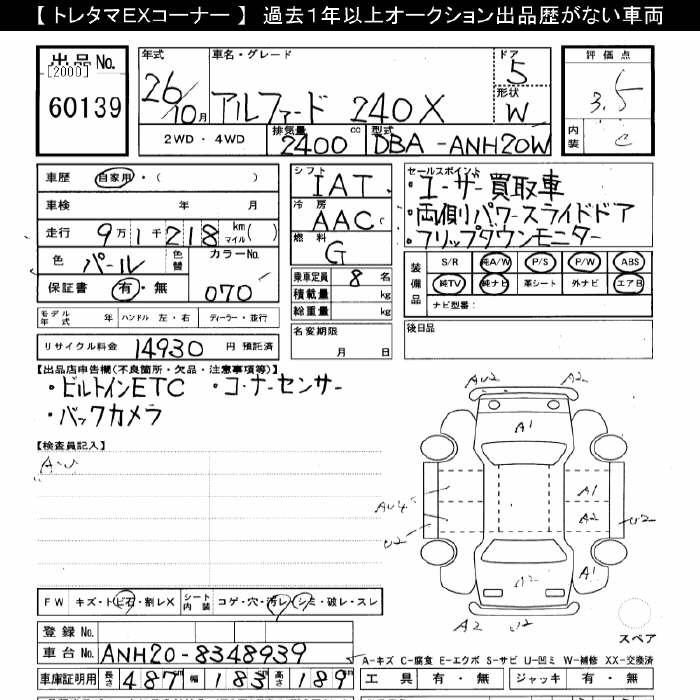 【 トレタマEXコーナー 】 過去1年以上オークション出品歴がない車両
出品 No.
[2000]
60139
年式
車名・グレード
ドア
26/10月 アルファード 240X
5
形状
W
2WD・4WD
排気量
2400 cc
型式
DBA-ANH20W
評価点
3.5
内装
C
車歴 自家用・( )
車検 年 月
走行 9万1千218 km(マイル)
色 パール 色替 カラーNo.
保証書 有・無 070
シフト
IAT
冷房
AAC
燃料
G
乗車定員 8 名
積載量 kg
総重量 kg
名変期限
月 日
セールスポイント
・ユーザー買取車
・両側パワースライドドア
・フリップダウンモニター
装備品
S/R 純A/W P/S P/W ABS
純TV 純ナビ 革シート 外ナビ エアB
ナビ型番:
後日品
モデル年式 年 ハンドル 左・右 ディーラー・並行
リサイクル料金 14930 円 預託済
【出品店申告欄(不良箇所・欠品・注意事項等)】
・ビルトインETC ・コーナーセンサー
・バックカメラ
【検査員記入】
AU
AU2 A2
A1
A1
AU4 A2 U2
U2
A1
A2 U2
スペア
FW キズ・トビ石・割レX シート内装 コゲ・穴・汚レ・シミ・破レ・スレ
登録 No.
車台 No. ANH20-8348939
車庫証明用 長さ 487 幅 183 高さ 189
A-キズ C-腐食 E-エクボ S-サビ U-凹ミ W-補修 XX-交換済
工具 有・無 ジャッキ 有・無